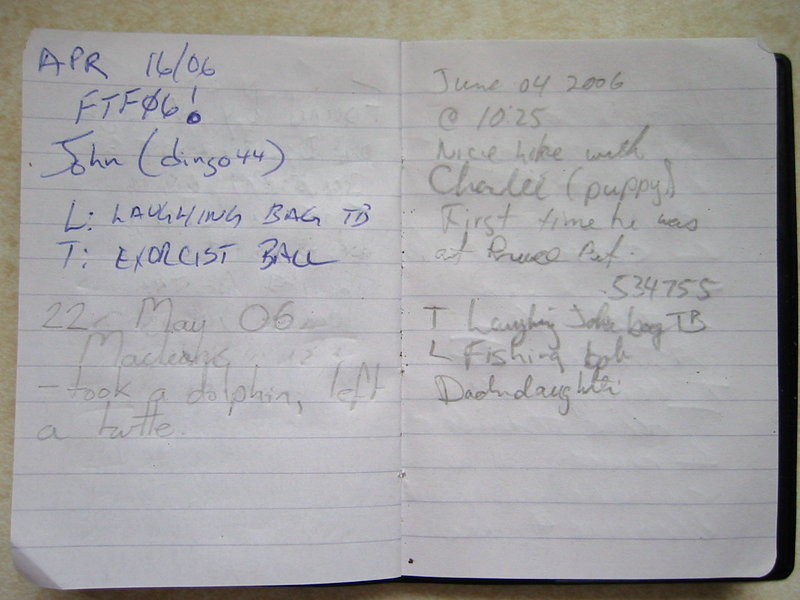 APR 16/06
FTFØ6!
John (dingo44)
L: LAUGHING BAG TB
T: EXORCIST BALL
22 May 06
- took a dolphin, left
a turtle
June 04 2006
@ 10:25
Nice hike with
Charlee (puppy)
First time he was
at
534755
T Laughing Joke bag TB
L Fishing
Dadndaughter